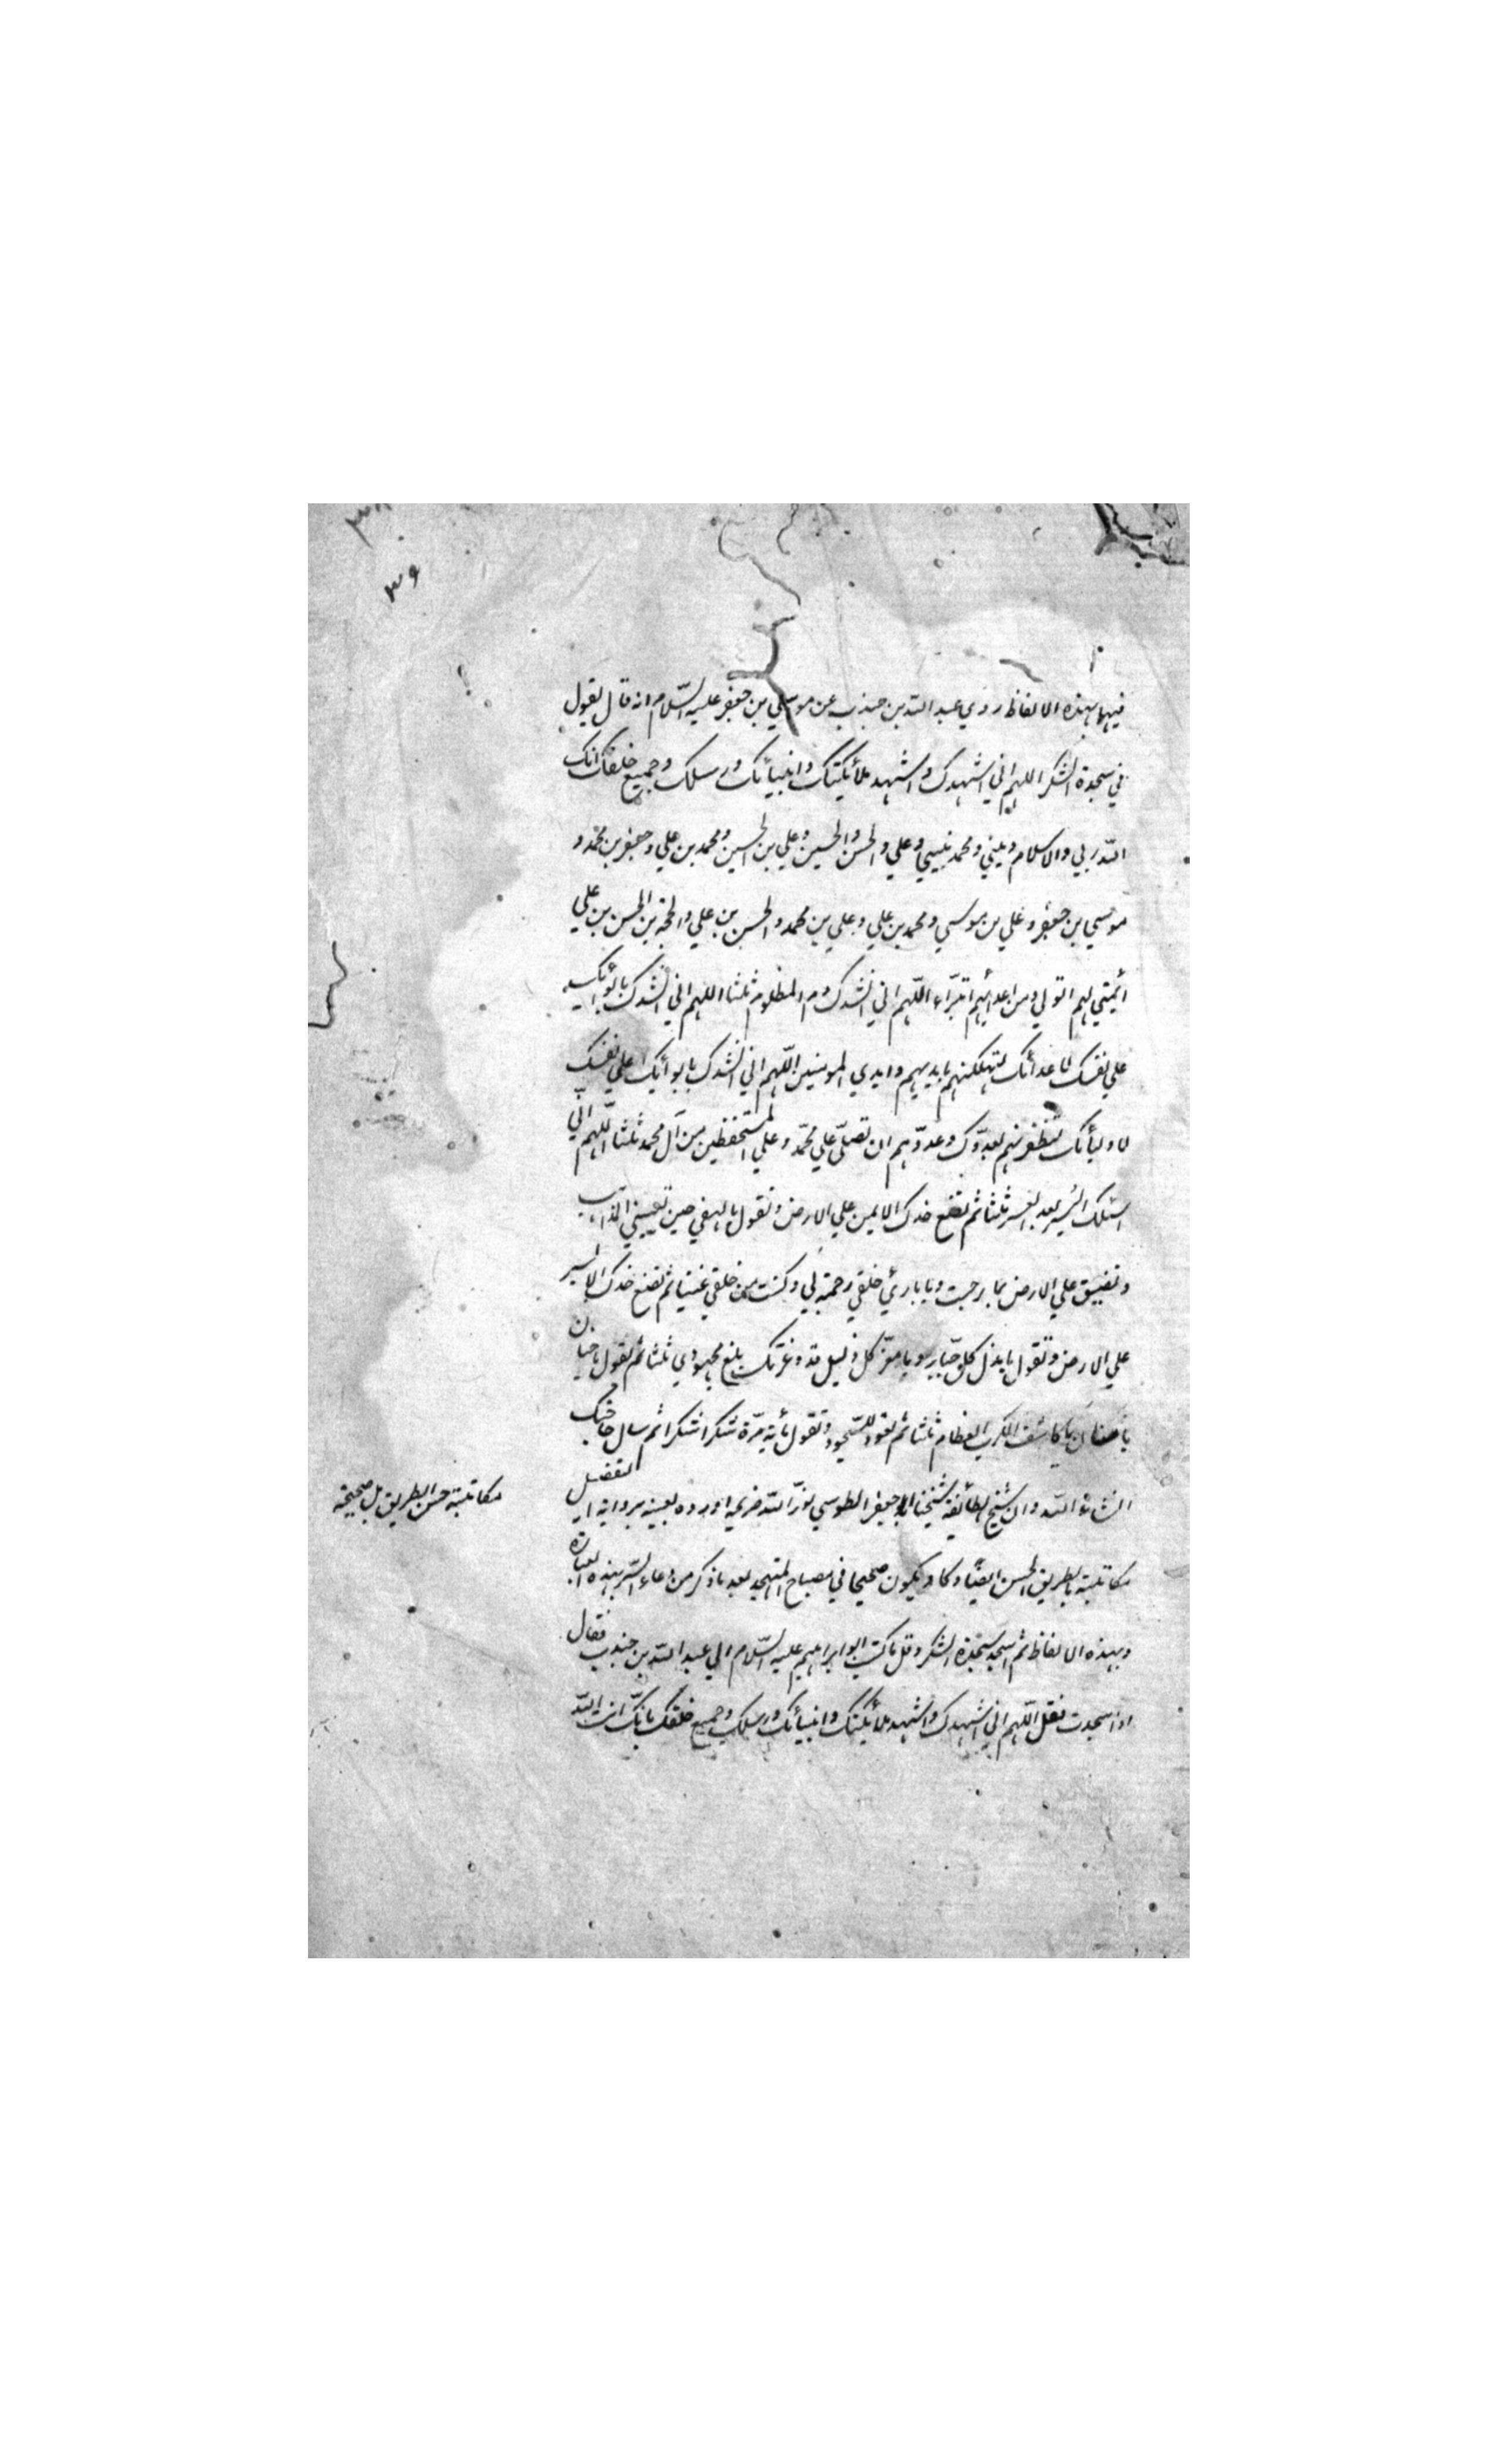 ٣٦
فيها بهذه الالفاظ روي عبد الله بن جندب عن موسي بن جعفر عليه السّلام انه قال تقول
في سجدة الشكر اللهم اني اشهدك واشهد ملائكتك وانبيائك ورسلك وجميع خلقك انك
الله ربي والاسلام ديني ومحمد نبيي وعلي والحسن والحسين وعلي بن الحسين ومحمد بن علي وجعفر بن محمد و
موسي بن جعفر وعلي بن موسي ومحمد بن علي وعلي بن محمد والحسن بن علي والحجة بن الحسن بن علي
ائمتي بهم اتولي ومن اعدائهم اتبرّاء اللّهم اني انشدك دم المظلوم ثلثا اللهم اني انشدك بايوائك
علي نفسك لاعدائك لتهلكنهم بايديهم وايدي المومنين اللّهم اني انشدك بايوائك علي نفسك
لاوليائك لتظفرنهم بعدوّك وعدوّهم ان تصلّي علي محمّد وعلي المستحفظين من آل محمد ثلثا اللّهم انّي
اسئلك اليُسر بعد العسر ثلثا ثم تضع خدك الايمن علي الارض وتقول يا كهفي حين تعييني المذاهب
وتضيق علي الارض بما رحبت ويا بارئ خلقي رحمة لي وكنت من خلقي غنيّا ثم تضع خدك الايسر
علي الارض وتقول يا مذل كل جبّار ويا معزّ كل ذليل قد وعزتك بلغ مجهودي ثلثا ثم تقول يا حنان
يا منان يا كاشف الكرب العظام ثلثا ثم تعود للسّجود وتقول مأية مرّة شكرا شكرا ثم سال حاجتك
انشاء الله وان شيخ الطائفة شيخنا ابو جعفر الطوسي نوّر الله ضريحه اورده بعينه برواية ابي المفضل
مكاتبته حسن الطريق بل صحيحة
مكاتبته بالطريق الحسن ايضًا وكاد يكون صحيحا في مصباح المتهجد بعد ما ذكر من دعاء السّر بهذه العبارة
وبهذه الالفاظ ثم اسجد سجدة الشكر وقل ما كتب ابو ابراهيم عليه السّلام الي عبد الله بن جندب فقال
اذا سجدت فقل اللّهم اني اشهدك واشهد ملائكتك وانبيائك ورسلك وجميع خلقك بانّك انت اللّه